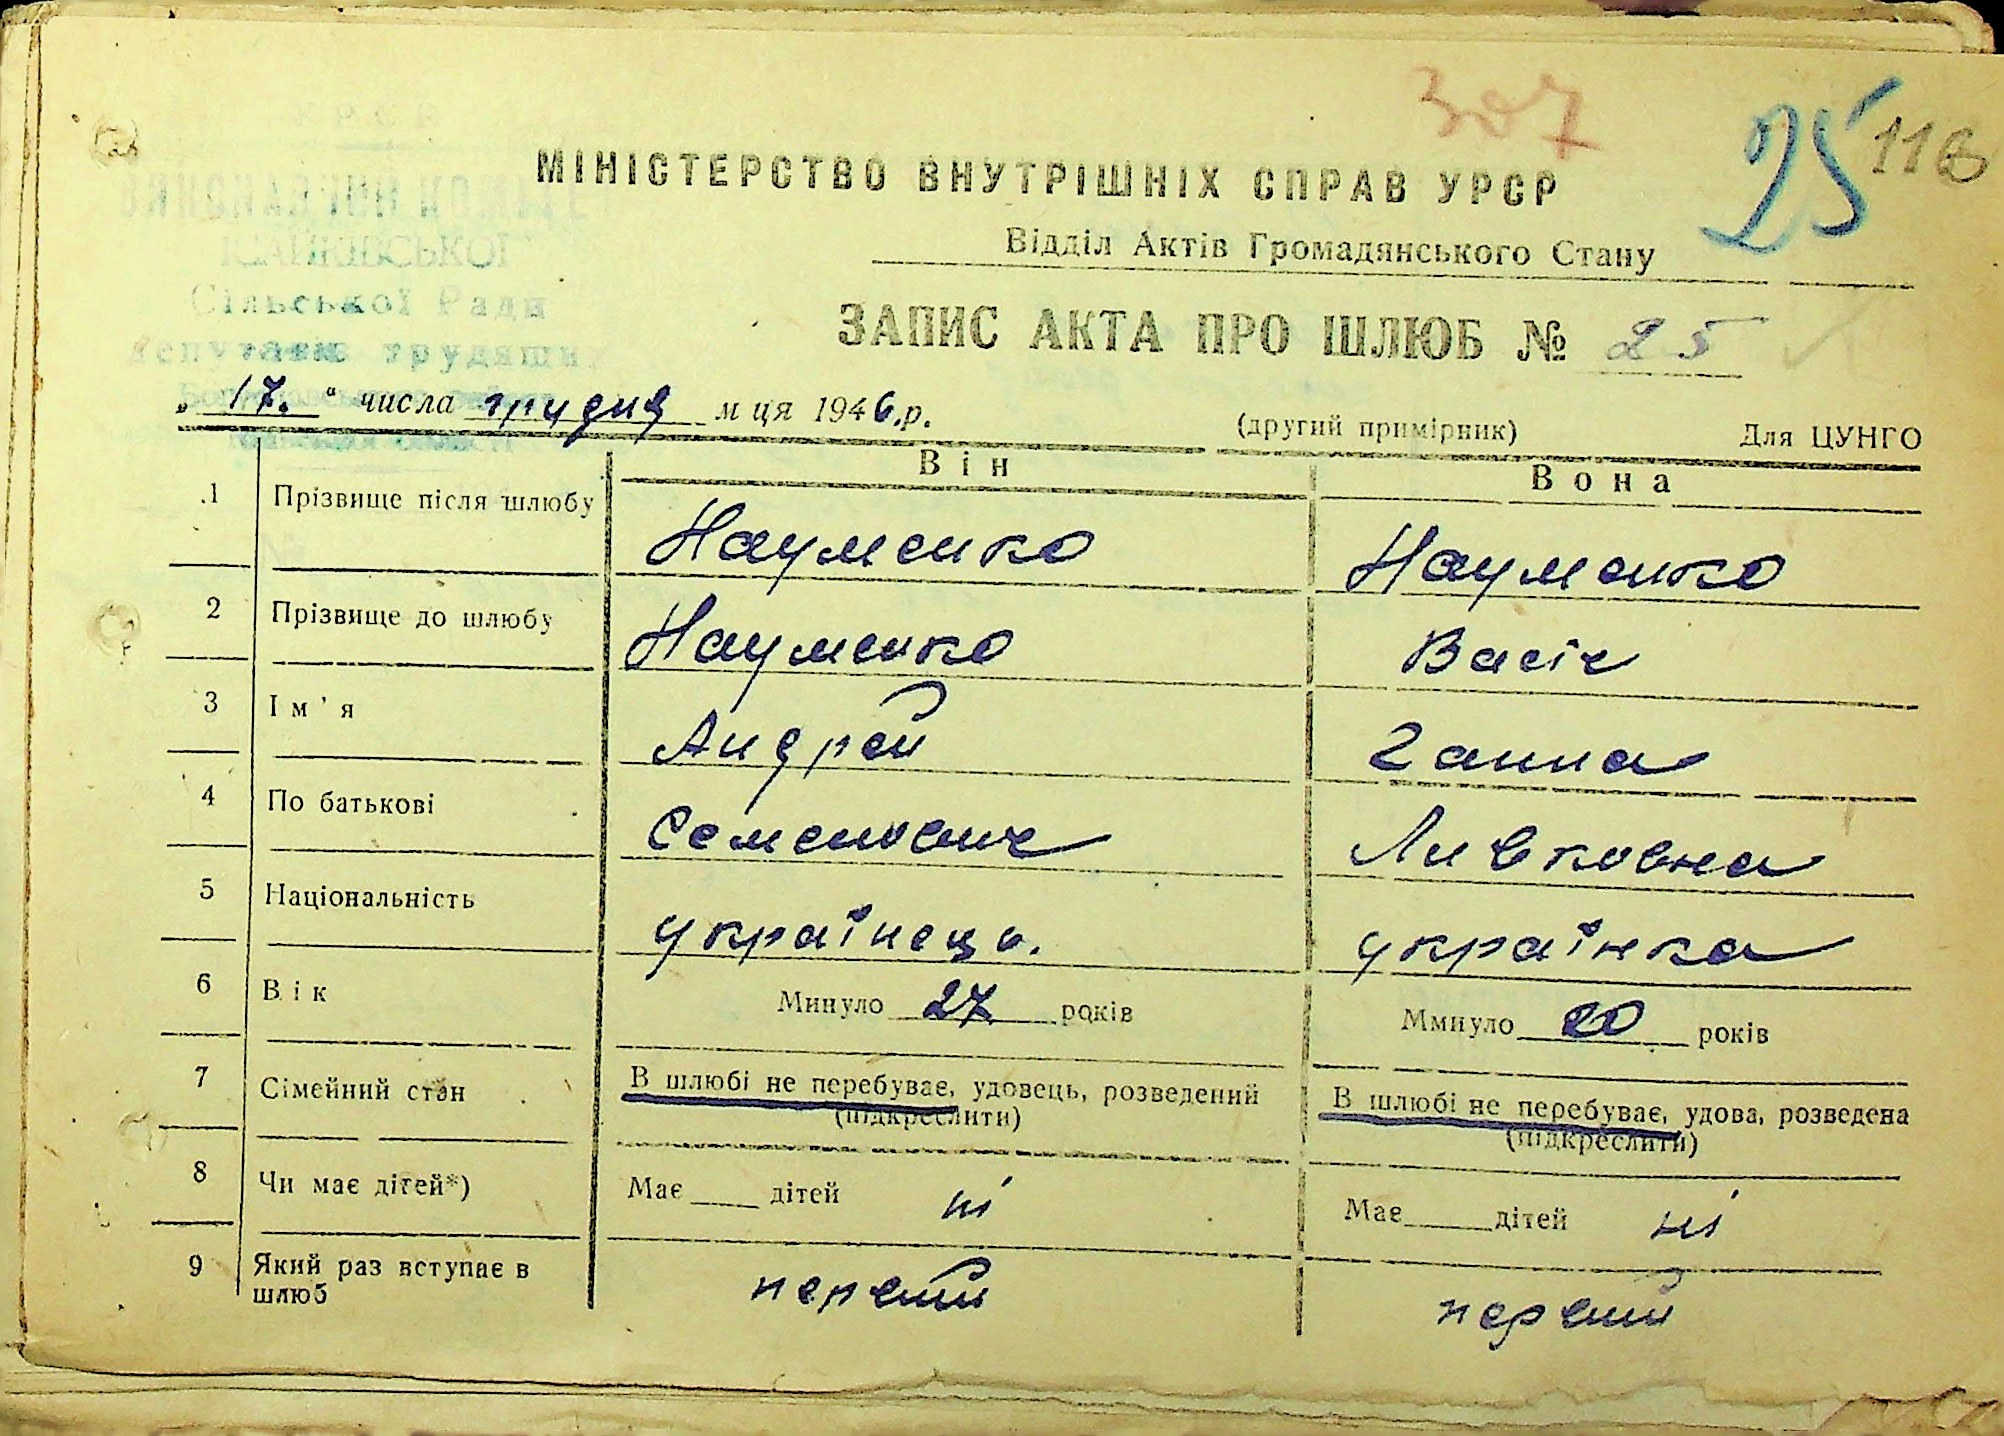 307
25
116
МІНІСТЕРСТВО ВНУТРІШНІХ СПРАВ УРСР
Відділ Актів Громадянського Стану
Сільської Ради
ЗАПИС АКТА ПРО ШЛЮБ № 25
„ 17. “ числа грудня м ця 1946.р.
(другий примірник) Для ЦУНГО
Він Вона
1 Прізвище після шлюбу Науменко Науменко
2 Прізвище до шлюбу Науменко Васіч
3 Ім'я Андрей Ганна
4 По батькові Семенович Ливковна
5 Національність українець. українка
6 Вік Минуло 27 років Ммнуло 20 років
7 Сімейний стан В шлюбі не перебуває, удовець, розведений В шлюбі не перебуває, удова, розведена
(підкреслити) (підкреслити)
8 Чи має дітей*) Має дітей ні Має дітей ні
9 Який раз вступає в перший перший
шлюб